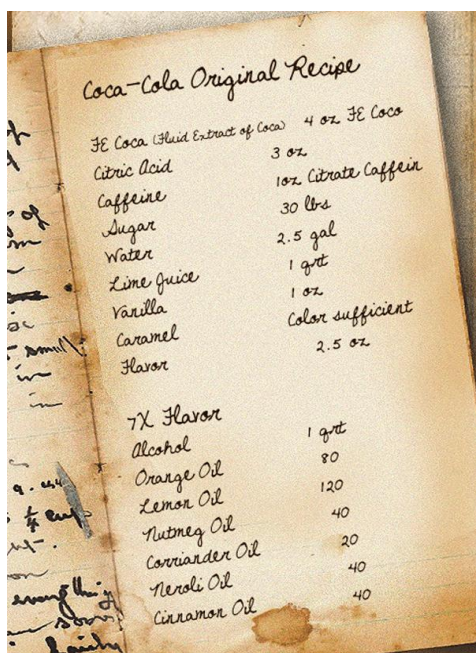 of
of
small
in
in
Coca-Cola Original Recipe
FE Coca (Fluid Extract of Coca) 4 oz FE Coco
Citric Acid 3 oz
Caffeine 1oz Citrate Caffein
Sugar 30 lbs
Water 2.5 gal
Lime Juice 1 qrt
Vanilla 1 oz
Caramel Color sufficient
Flavor 2.5 oz
7X Flavor
Alcohol 1 qrt
Orange Oil 80
Lemon Oil 120
Nutmeg Oil 40
Corriander Oil 20
Neroli Oil 40
Cinnamon Oil 40